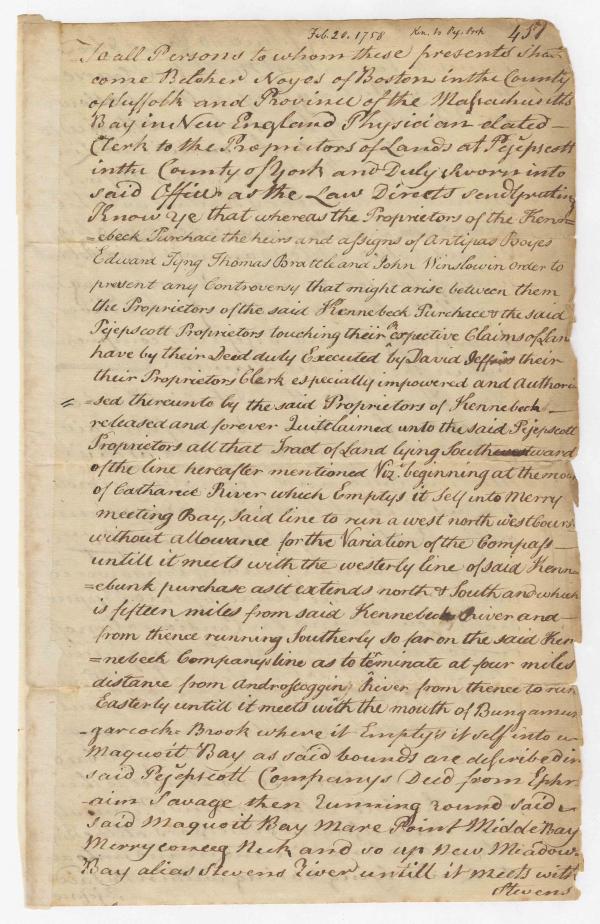 Feb. 20. 1758 Ken. to Pej. Prop 451
To all Persons to whom these presents shall
come Belcher Noyes of Boston in the County
of Suffolk and Province of the Massachusetts
Bay in New England Physician elated
Clerk to the Proprietors of Lands at Pejepscott
in the County of York and Duly Sworn into
said Office as the Law Directs send Grating
Know Ye that whereas the Proprietors of the Kenn=
=ebeck Purchace the heirs and assigns of Antipas Boyes
Edward Tyng Thomas Brattle and John Winslow in order to
prevent any Controversy that might arise between them
the Proprietors of the said Kennebeck Purchace & the said
Pejepscott Proprietors touching their respective Claims of Lan
have by their Deed duly Executed by David Jeffries their
their Proprietors Clerk especially impowered and Authori
=sed thereunto by the said Proprietors of Kennebeck
released and forever Quitclaimed unto the said Pejepscott
Proprietors all that Tract of Land lying Southward
of the line hereafter mentioned Viz.t beginning at the mou
of Cathance River which Emptys it Self into Merry
meeting Bay, Said line to run a west north west Cours
without allowance for the Variation of the Compass
untill it meets with the westerly line of said Kenn=
=ebunk purchase as it extends north & South and which
is fifteen miles from said Kennebeck River and
from thence running Southerly so far on the said Ken
=nebeck Companys line as to terminate at four miles
distance from Androscoggin River from thence to run
Easterly untill it meets with the mouth of Bungamun
-garcock Brook where it Emptys it self into
Maquoit Bay as said bounds are described in
said Pejepscott Companys Deed from Ephr
-aim Savage then running round said
said Maquoit Bay Mare Point Middle Bay
Merryconeeg Neck and so up New Meadow
Bay alias Stevens River untill it meets with
Stevens